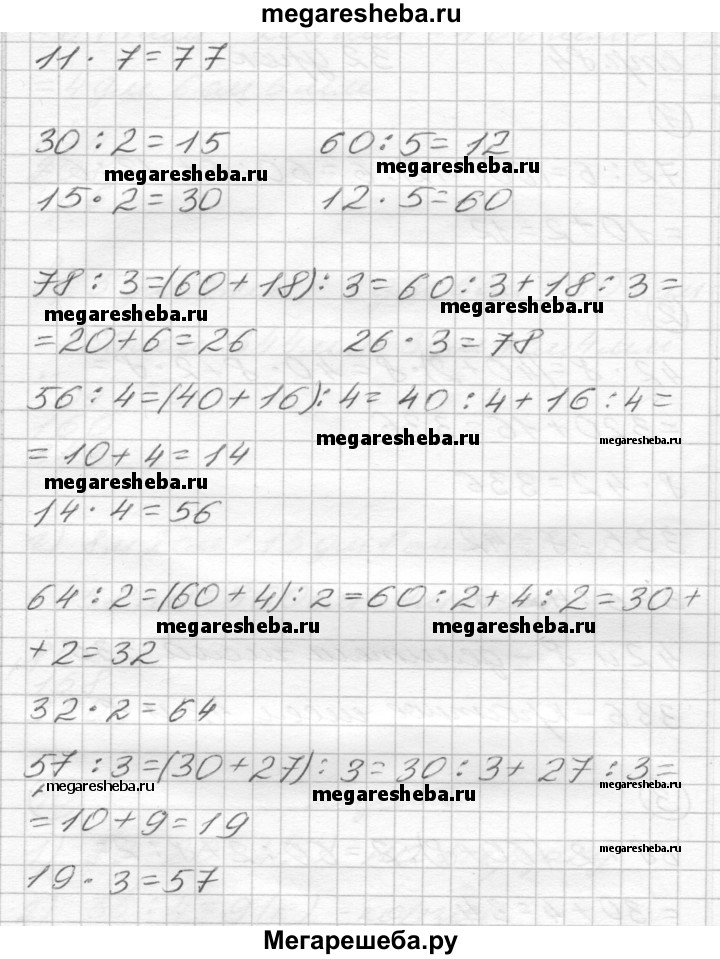 megaresheba.ru
11 · 7 = 77
30 : 2 = 15 60 : 5 = 12
megaresheba.ru megaresheba.ru
15 · 2 = 30 12 · 5 = 60
78 : 3 = (60 + 18) : 3 = 60 : 3 + 18 : 3 =
megaresheba.ru megaresheba.ru
= 20 + 6 = 26 26 · 3 = 78
56 : 4 = (40 + 16) : 4 = 40 : 4 + 16 : 4 =
megaresheba.ru megaresheba.ru
= 10 + 4 = 14
megaresheba.ru
14 · 4 = 56
64 : 2 = (60 + 4) : 2 = 60 : 2 + 4 : 2 = 30 +
megaresheba.ru megaresheba.ru
+ 2 = 32
32 · 2 = 64
57 : 3 = (30 + 27) : 3 = 30 : 3 + 27 : 3 =
megaresheba.ru megaresheba.ru megaresheba.ru
= 10 + 9 = 19
megaresheba.ru
19 · 3 = 57
Мегарешеба.ру